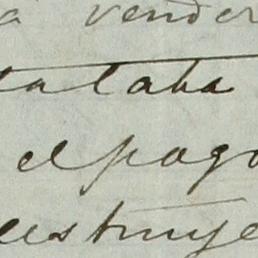 a vender
tataba
el pago
estruye